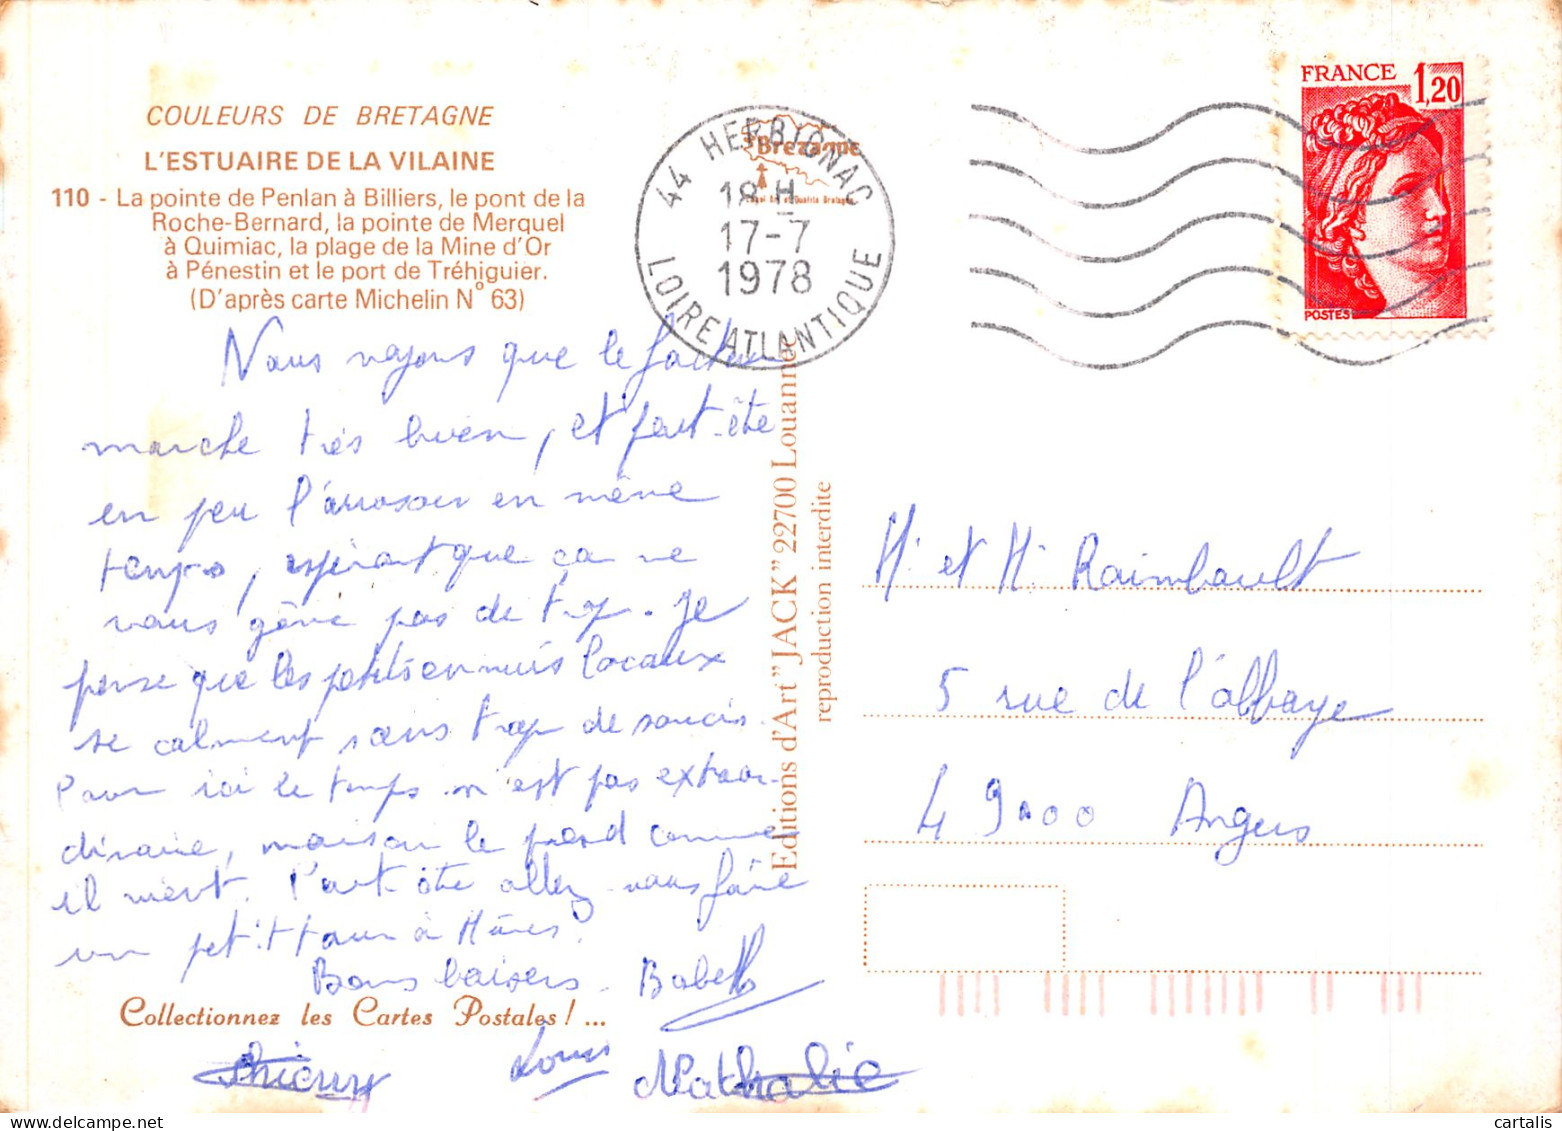 COULEURS DE BRETAGNE
L'ESTUAIRE DE LA VILAINE
110 - La pointe de Penlan à Billiers, le pont de la
Roche-Bernard, la pointe de Merquel
à Quimiac, la plage de la Mine d'Or
à Pénestin et le port de Tréhiguier.
(D'après carte Michelin N° 63)
Nous voyons que le facteur
marche très bien, et peut-être
en peu l'arrosoir en même
temps, espérant que ça ne
vous gêne pas de trop. Je
pense que les petits ennuis locaux
se calment sans trop de soucis.
Pour ici le temps n'est pas extraor-
dinaire, mais on le prend comme
il vient. Peut-être allez-vous faire
un petit tour à Mûrs?
Bons baisers - Babeth
Collectionnez les Cartes Postales! ...
Thierry Louis Nathalie
44 HERBIGNAC
18 H
17-7
1978
LOIRE ATLANTIQUE
Bretagne
Editions d'Art "JACK" 22700 Louannec
reproduction interdite
FRANCE 1,20
POSTES
M. et M. Raimbault
5 rue de l'abbaye
49000 Angers
cartalis